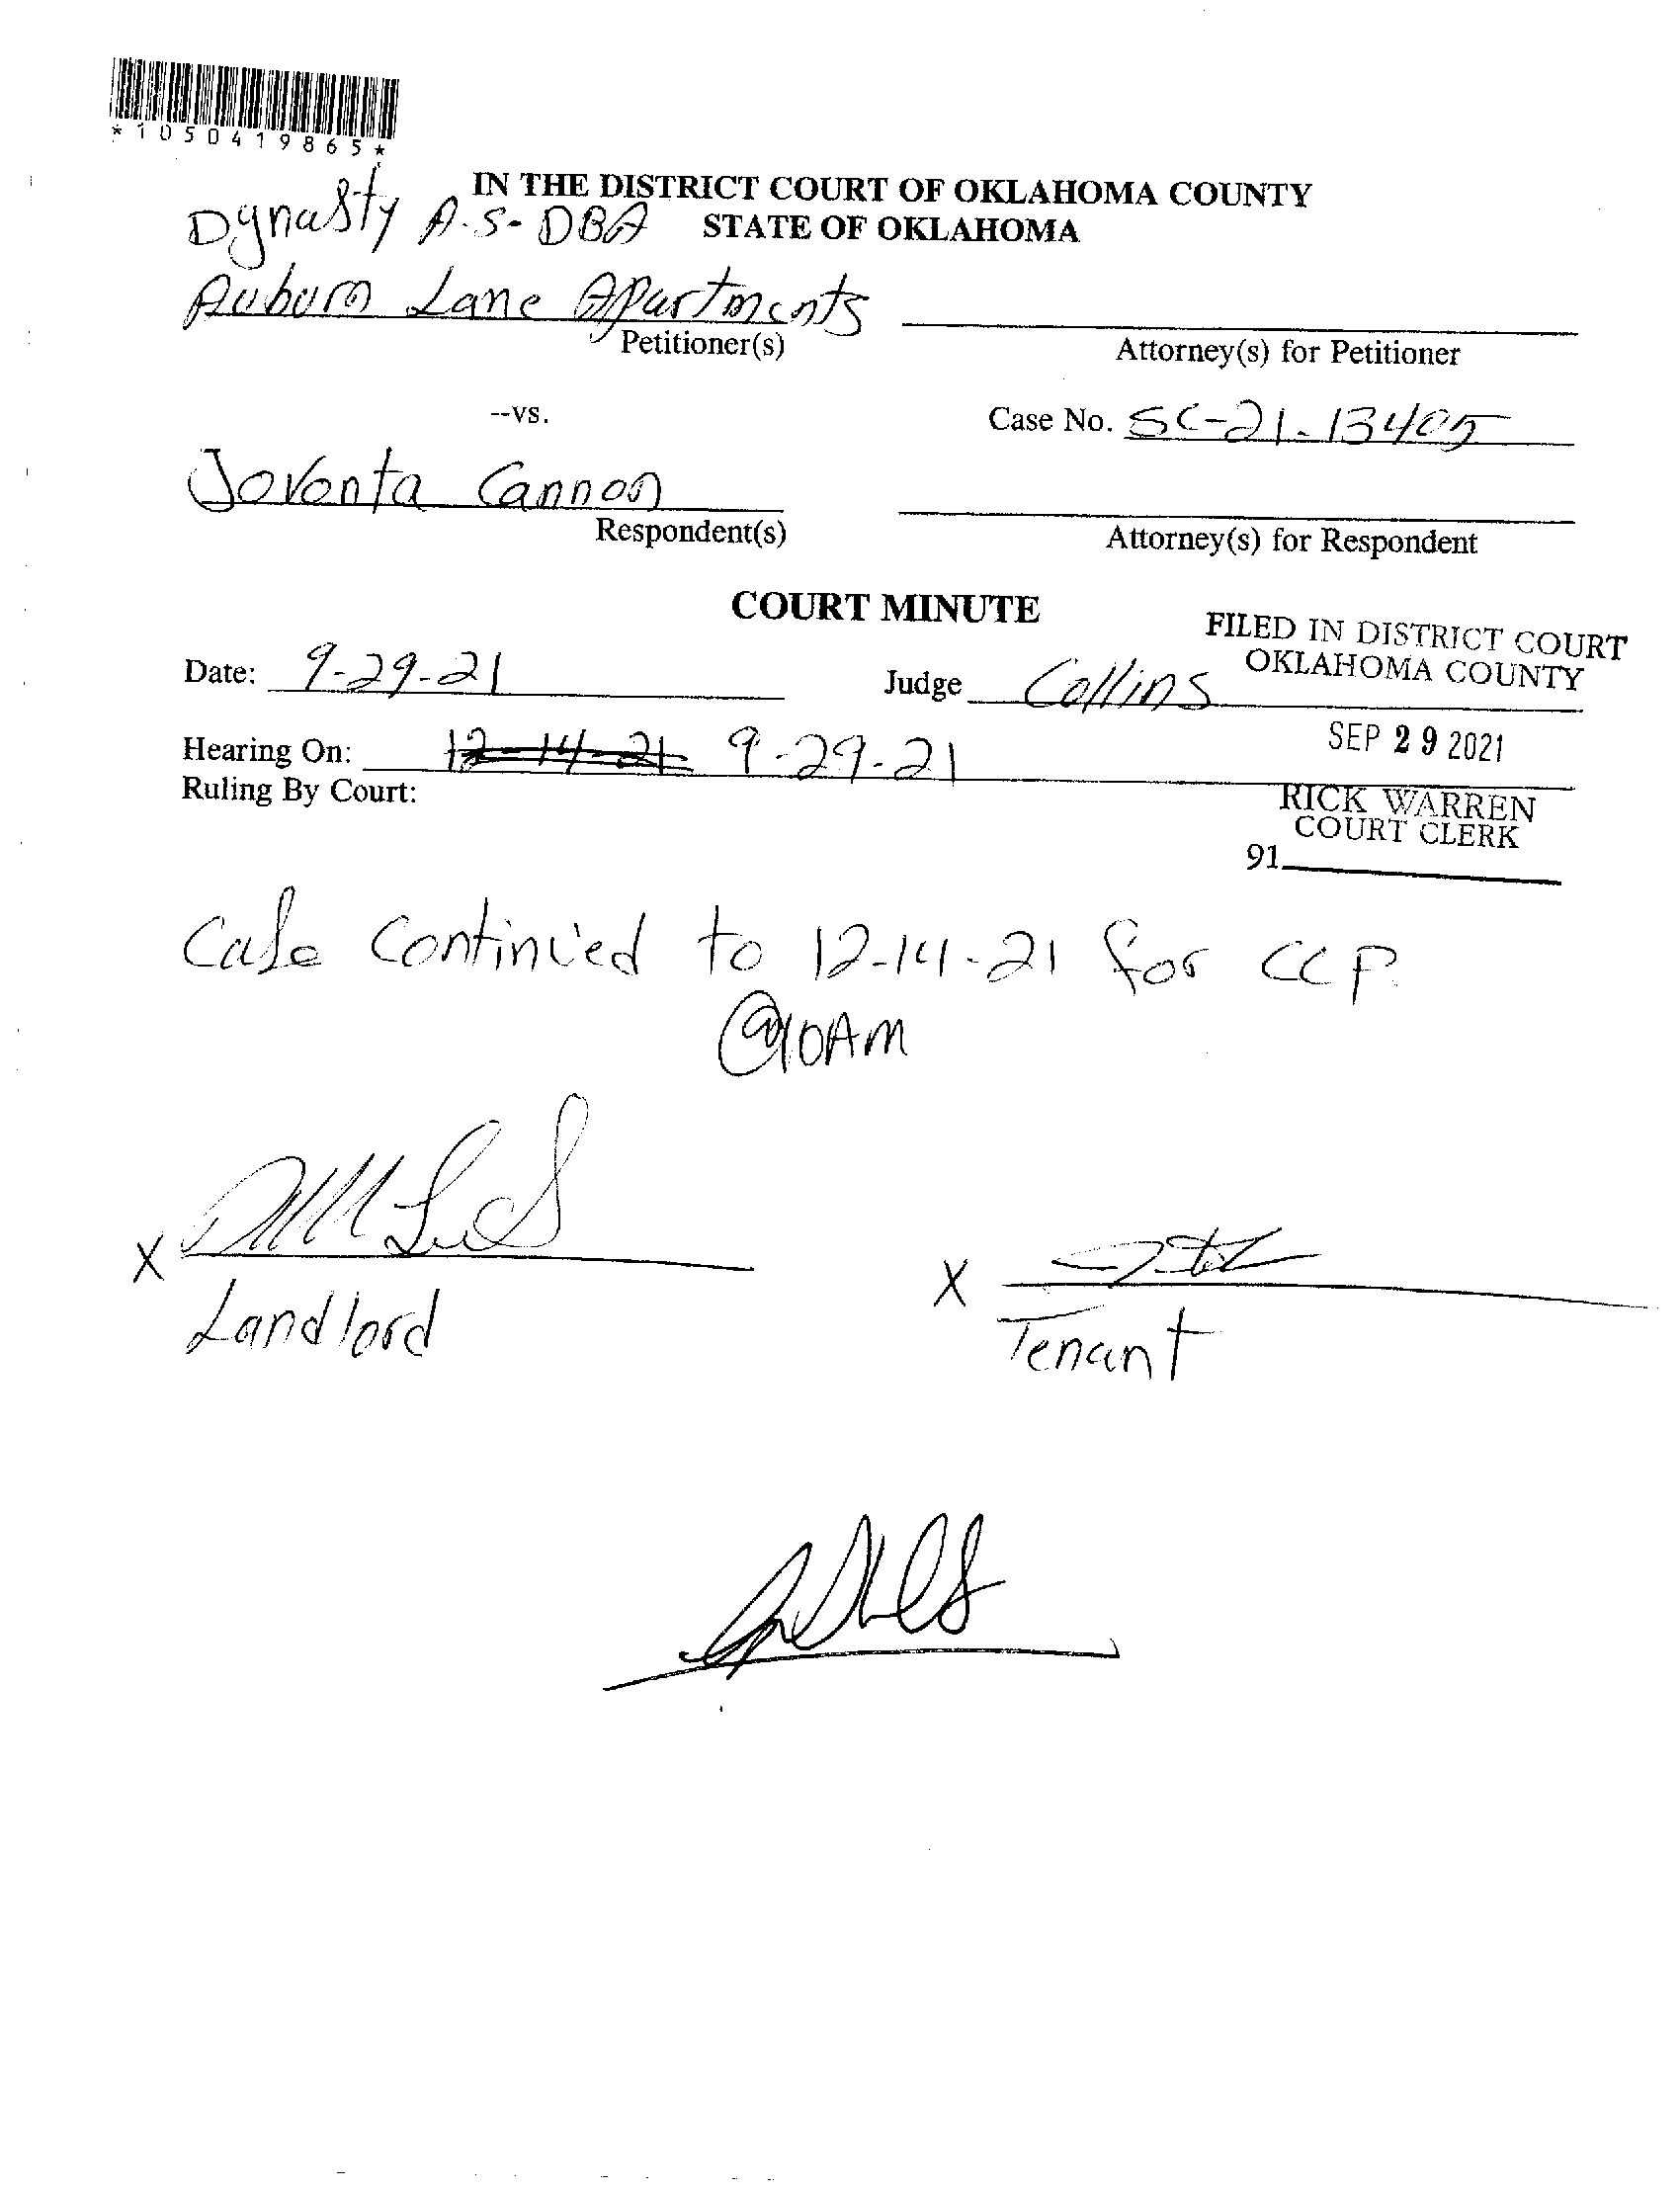 *1050419865*
IN THE DISTRICT COURT OF OKLAHOMA COUNTY
STATE OF OKLAHOMA
Dynasty A.S- DBA
Auburn Lane Apartments
Petitioner(s)
Attorney(s) for Petitioner
--vs.
Case No. SC-21-13405
Joventa Cannon
Respondent(s)
Attorney(s) for Respondent
COURT MINUTE
FILED IN DISTRICT COURT
OKLAHOMA COUNTY
Date: 9-29-21
Judge Collins
SEP 29 2021
Hearing On: 12-14-21 9-29-21
Ruling By Court:
RICK WARREN
COURT CLERK
91
Case Continued to 12-14-21 for CCP.
@10AM
X
Landlord
X
Tenant